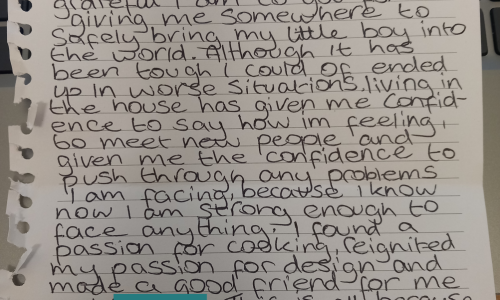 grateful I am to
giving me somewhere to
safely bring my little boy into
the world. Although it has
been tough I could of ended
up in worse situations. living in
the house has given me confid-
ence to say how im feeling,
to meet new people and
given me the confidence to
push through any problems
I am facing, because I know
now I am strong enough to
face anything. I found a
passion for cooking, reignited
my passion for design and
made a good friend for me